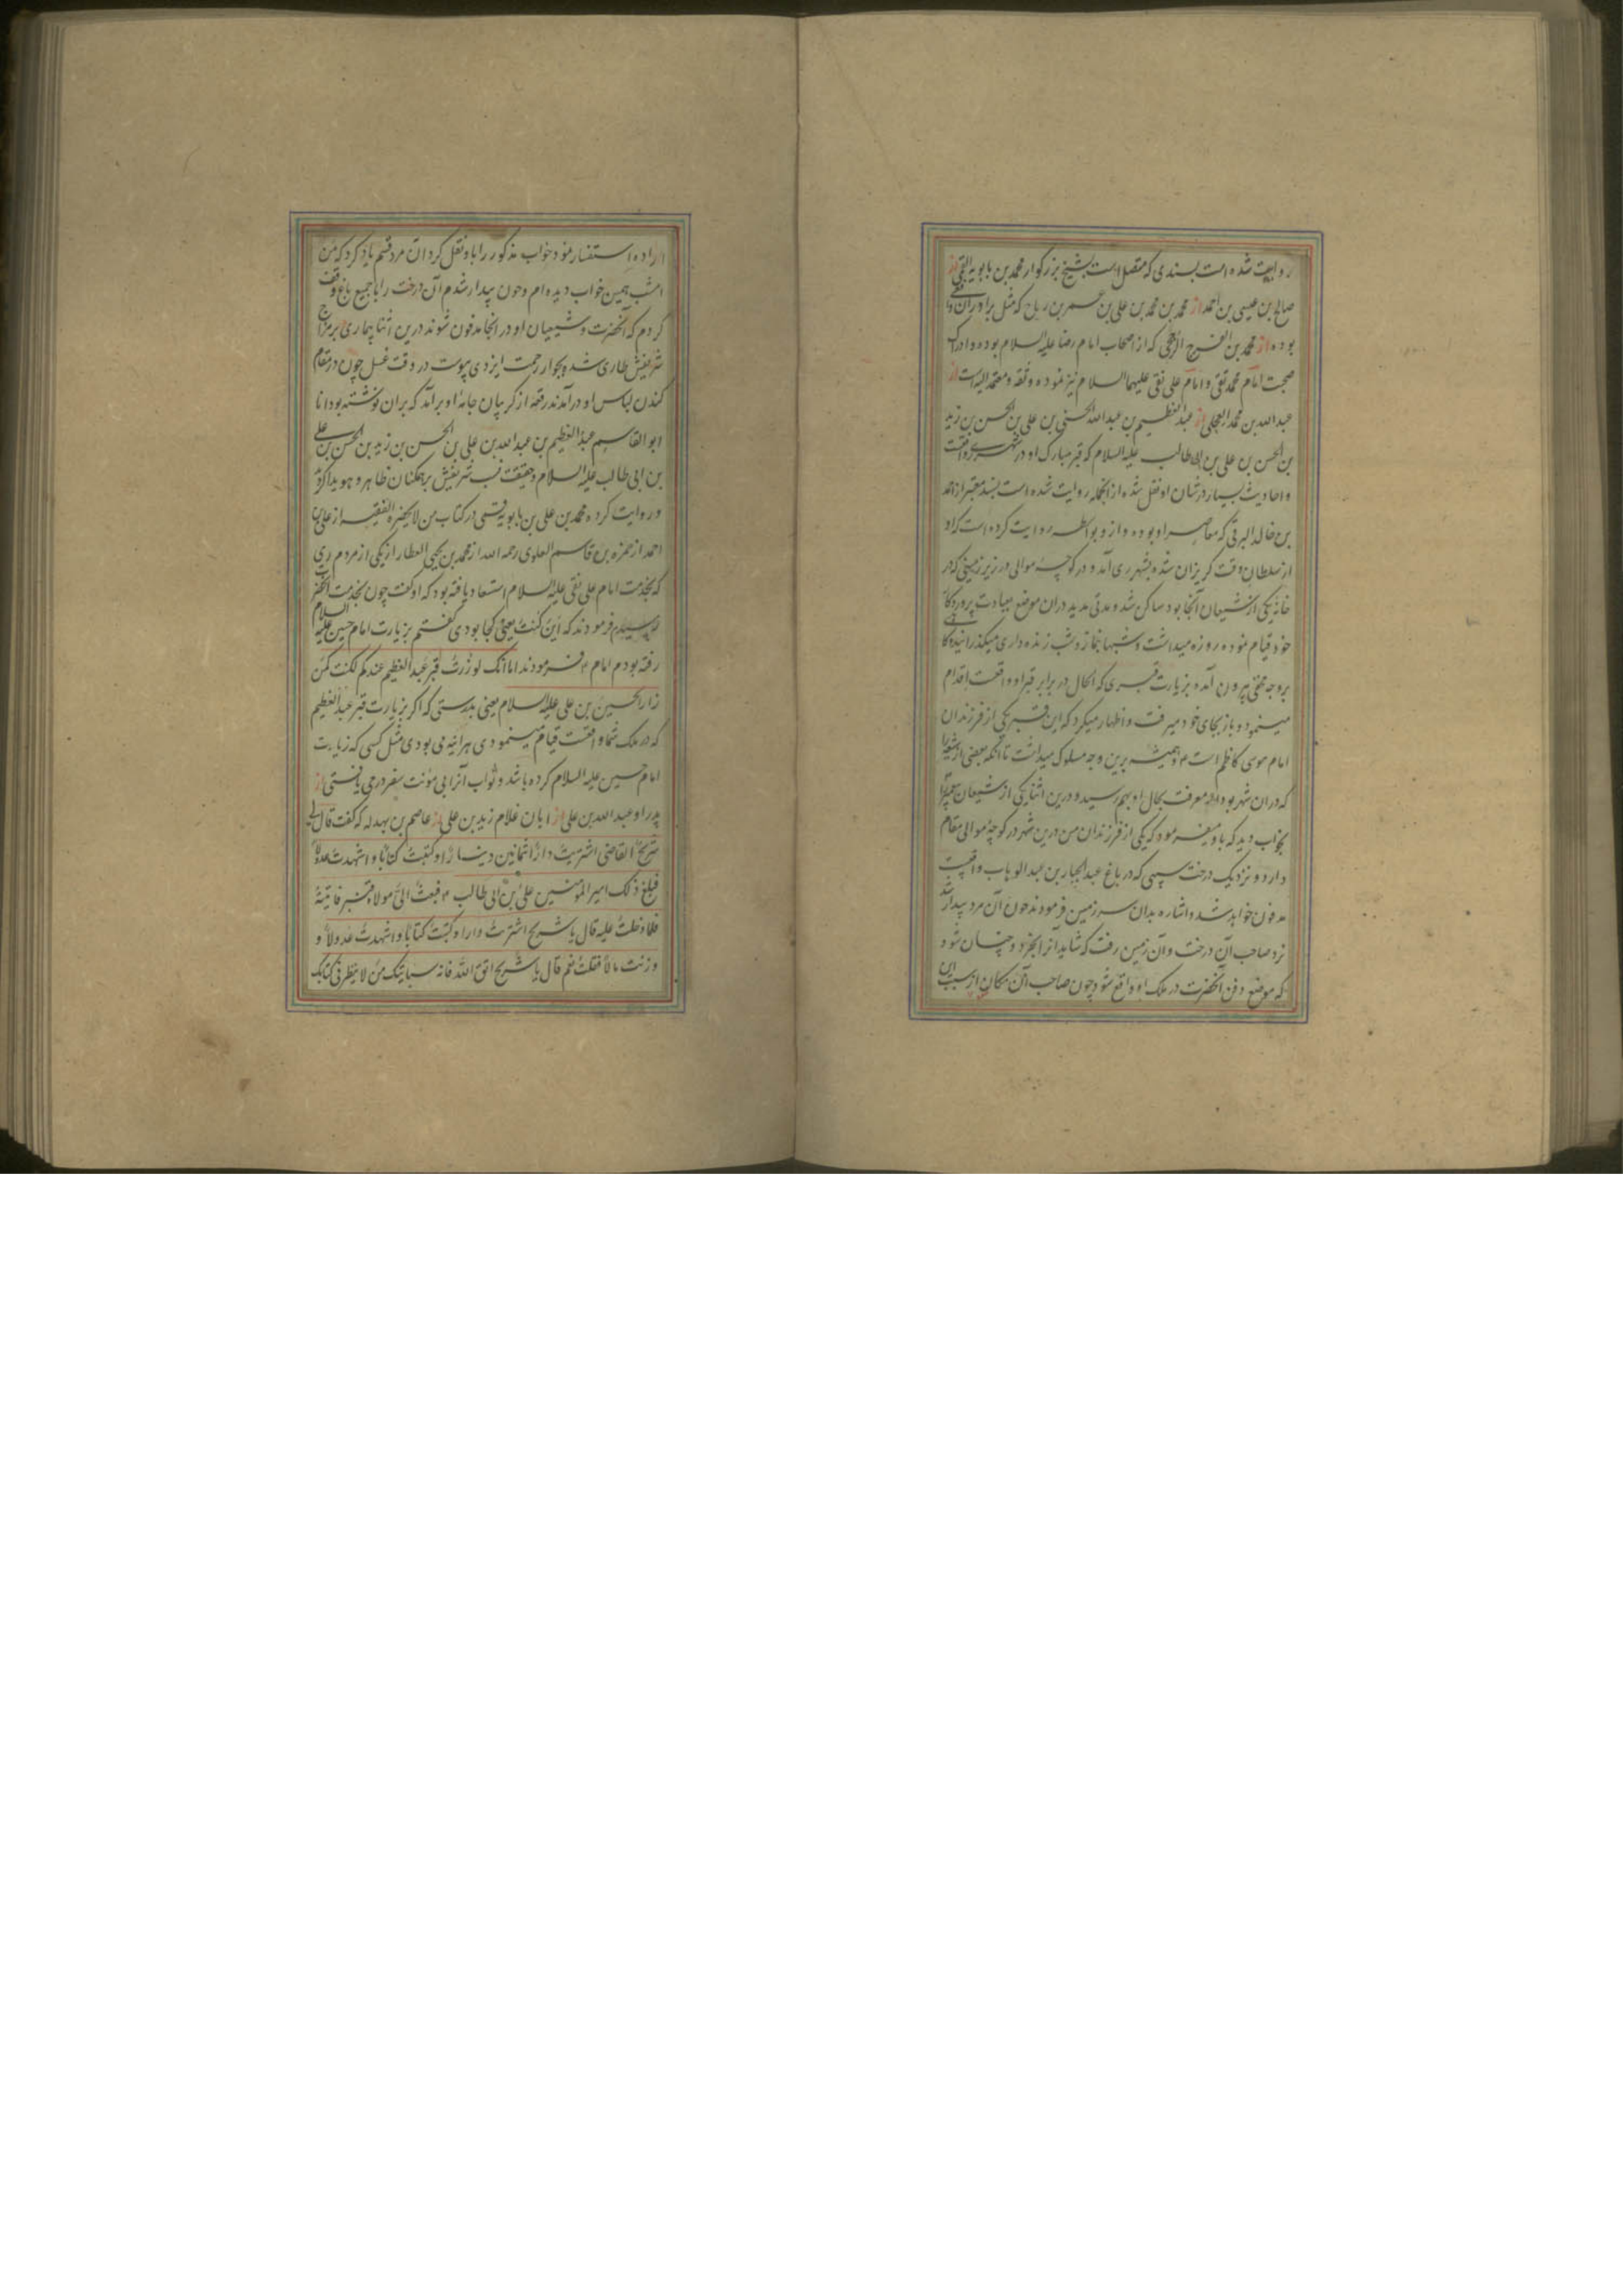 روایت شده است بسندی که متصل است بشیخ بزرگوار محمد بن بابویه القمی از
صالح بن عیسی بن احمد از محمد بن محمد بن علی بن عمر بن رباح که مثل برادران واقفی
بوده از محمد بن الفرج الرخجی که از اصحاب امام رضا علیه السلام بوده و ادراک
صحبت امام محمد تقی و امام علی نقی علیهما السلام نیز نموده و ثقه و معتمد الیه است از
عبدالله بن محمد العجلی از عبدالعظیم بن عبدالله الحسنی بن علی بن الحسن بن زید
بن الحسن بن علی بن ابی طالب علیه السلام که قبر مبارک او در شهر ری واقعست
و احادیث بسیار در شان او نقل شده از انجمله روایت شده است بسند معتبر از احمد
بن خالد البرقی که معاصر او بوده و ازو بواسطه روایت کرده است که او
از سلطان وقت گریزان شده بشهر ری آمد و در کوچه موالی در زیر زمینی که در
خانه یکی از شیعیان آنجا بود ساکن شد و مدتی مدید دران موضع بعبادت پروردگار
خود قیام نموده روزه میداشت و شبها بنماز و شب زنده داری میگذرانید و گاهی
بر وجه مخفی بیرون آمده بزیارت قبری که الحال در برابر قبر او واقعست اقدام
مینمود و باز بجای خود میرفت و اظهار میکرد که این قبر یکی از فرزندان
امام موسی کاظم است ع و همیشه برین وجه سلوک میداشت تا آنکه بعضی از شیعه را
که دران شهر بودند معرفت بحال او بهم رسید و درین اثنا یکی از شیعیان پیغمبر را
بخواب دید که باو میفرمود که یکی از فرزندان من درین شهر در کوچه موالی مقام
دارد و نزدیک درخت سیبی که در باغ عبدالجبار بن عبدالوهاب واقعست
مدفون خواهد شد و اشاره بدان سرزمین فرمودند چون آن مرد بیدار شد
نزد صاحب آن درخت و آن زمین رفت که شاید آنرا بخرد و چنان شود
که موضع دفن آنحضرت در ملک او واقع شود چون صاحب آن مکان از سبب این
اراده استفسار نمود خواب مذکور را باو نقل کرد آن مرد قسم یاد کرد که من
امشب همین خواب دیده ام و چون بیدار شدم آن درخت را با جمیع باغ وقف
کردم که آنحضرت و شیعیان او در انجا مدفون شوند درین اثنا بیماری بر مزاج
شریفش طاری شده بجوار رحمت ایزدی پیوست در وقت غسل چون در مقام
کندن لباس او درآمدند رقعه از گریبان جامه او برآمد که بران نوشته بود انا
ابو القاسم عبدالعظیم بن عبدالله بن علی بن الحسن بن زید بن الحسن بن علی
بن ابی طالب علیه السلام و حقیقت نسب شریفش بر همکنان ظاهر و هویدا گردید
و روایت کرده محمد بن علی بن بابویه قمی در کتاب من لا یحضره الفقیه از علی بن
احمد از حمزه بن قاسم العلوی رحمه الله از محمد بن یحیی العطار از یکی از مردم ری
که بخدمت امام علی نقی علیه السلام استسعاد یافته بود که او گفت چون بخدمت آنحضرت
رسیدم فرمودند که این کنت یعنی کجا بودی گفتم بزیارت امام حسین علیه السلام
رفته بودم امام ع فرمودند اما انک لو زرت قبر عبدالعظیم عندکم لکنت کمن
زار الحسین بن علی علیه السلام یعنی بدرستی که اگر بزیارت قبر عبدالعظیم
که در ملک شما واقعست قیام مینمودی هرآینه می بودی مثل کسی که زیارت
امام حسین علیه السلام کرده باشد و ثواب آنرا بی مؤنت سفر درمی یافتی از
پدر او عبدالله بن علی از ابان غلام زید بن علی از عاصم بن بهدله که گفت قال لی
شریح القاضی اشتریت دارا بثمانین دینارا و کتبت کتابا و اشهدت عدولا
فبلغ ذلک امیر المؤمنین علی بن ابی طالب ع فبعث الی مولاه قنبر فاتیته
فلما دخلت علیه قال یا شریح اشتریت دارا و کتبت کتابا و اشهدت عدولا و
وزنت مالا فقلت نعم قال یا شریح اتق الله فانه سیأتیک من لا ینظر فی کتابک